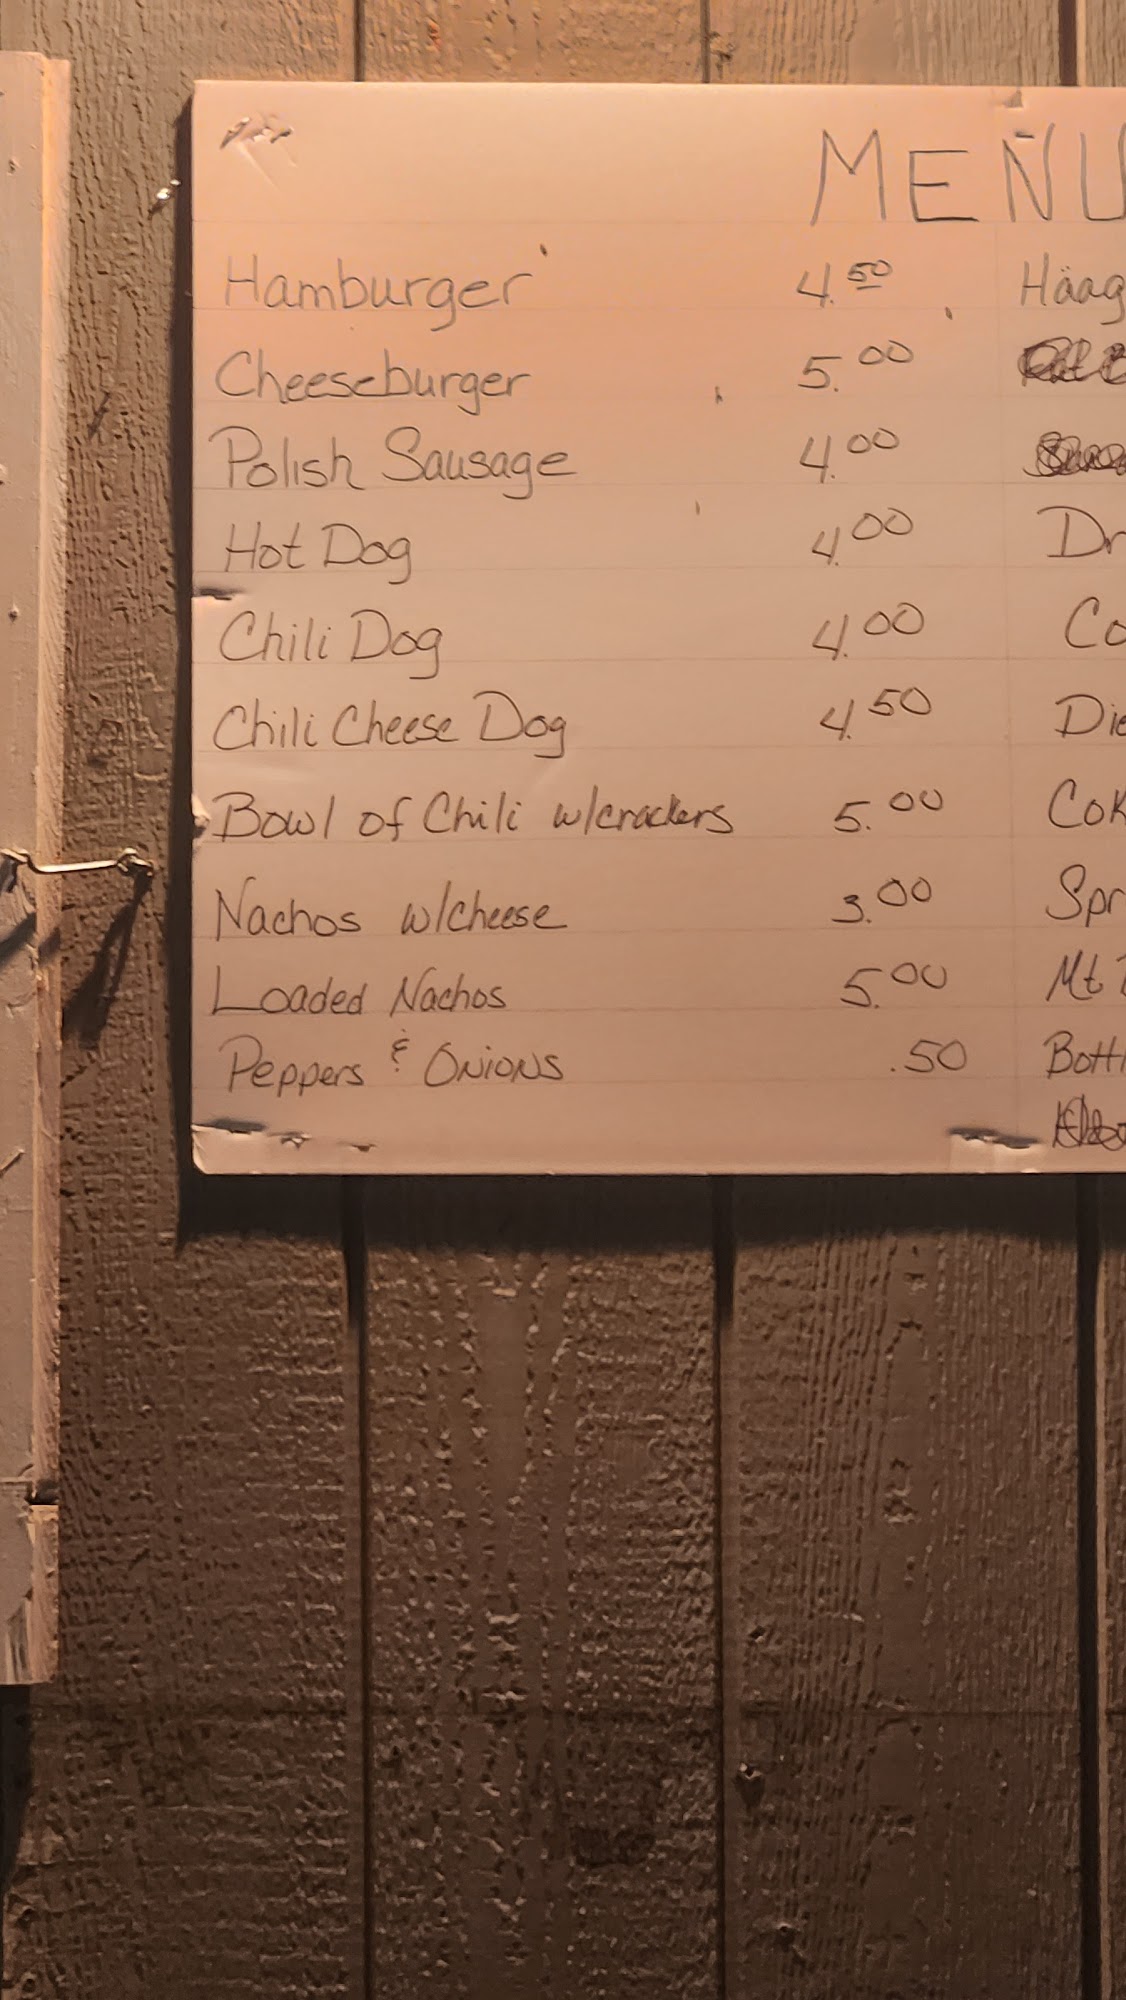 MENU
Hamburger 4.50 Häag
Cheeseburger 5.00
Polish Sausage 4.00
Hot Dog 4.00 Dr
Chili Dog 4.00 Co
Chili Cheese Dog 4.50 Die
Bowl of Chili w/crackers 5.00 Cok
Nachos w/cheese 3.00 Spr
Loaded Nachos 5.00 Mt
Peppers & Onions .50 Bottl